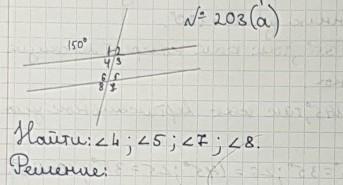 № 203(а)
150°
1 2
4 3
6 5
8 7
Найти: ∠4 ; ∠5 ; ∠7 ; ∠8.
Решение: